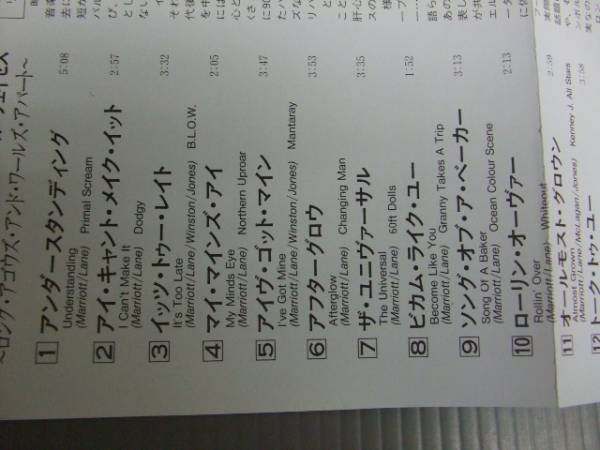 〜ロング・アゴウズ・アンド・ワールズ・アパート〜
1 アンダースタンディング 5:08
Understanding
(Marriott/Lane) Primal Scream
2 アイ・キャント・メイク・イット 2:57
I Can't Make It
(Marriott/Lane) Dodgy
3 イッツ・トゥー・レイト 3:32
It's Too Late
(Marriott/Lane/Winston/Jones) B.L.O.W.
4 マイ・マインズ・アイ 2:05
My Minds Eye
(Marriott/Lane) Northern Uproar
5 アイヴ・ゴット・マイン 3:47
I've Got Mine
(Marriott/Lane/Winston/Jones) Mantaray
6 アフターグロウ 3:53
Afterglow
(Marriott/Lane) Changing Man
7 ザ・ユニヴァーサル 3:35
The Universal
(Marriott/Lane) 60ft Dolls
8 ビカム・ライク・ユー 1:52
Become Like You
(Marriott/Lane) Granny Takes A Trip
9 ソング・オブ・ア・ベーカー 3:13
Song Of A Baker
(Marriott/Lane) Ocean Colour Scene
10 ローリン・オーヴァー 2:13
Rollin' Over
(Marriott/Lane) Whiteout
11 オールモスト・グロウン 2:59
Almost Grown
(Marriott/Lane/McLagan/Jones) Kenney J. All Stars
12 トーク・トゥ・ユー 3:58